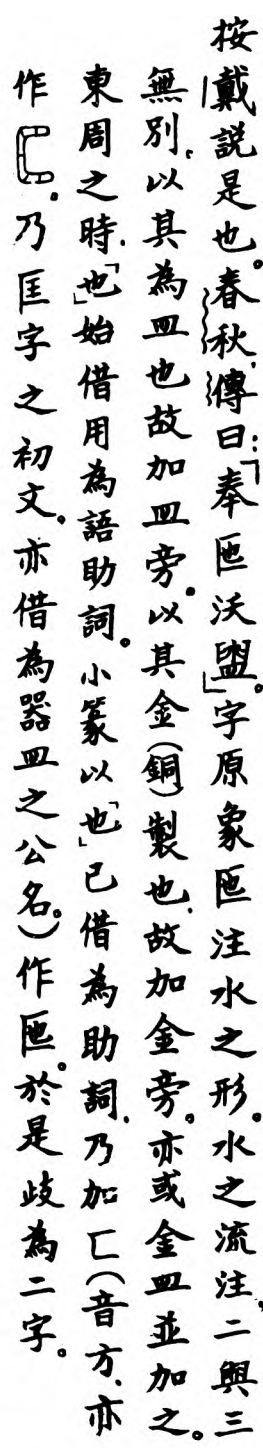 按戴説是也。春秋傳曰：「奉匜沃盥」。字原象匜注水之形。水之流注，二與三
無別，以其為皿也故加皿旁。以其金(銅)製也，故加金旁，亦或金皿並加之。
東周之時，「也」始借用為語助詞。小篆以「也」已借為助詞，乃加匚(音方，亦
作匚。乃匡字之初文。亦借為器皿之公名。)作匜。於是歧為二字。